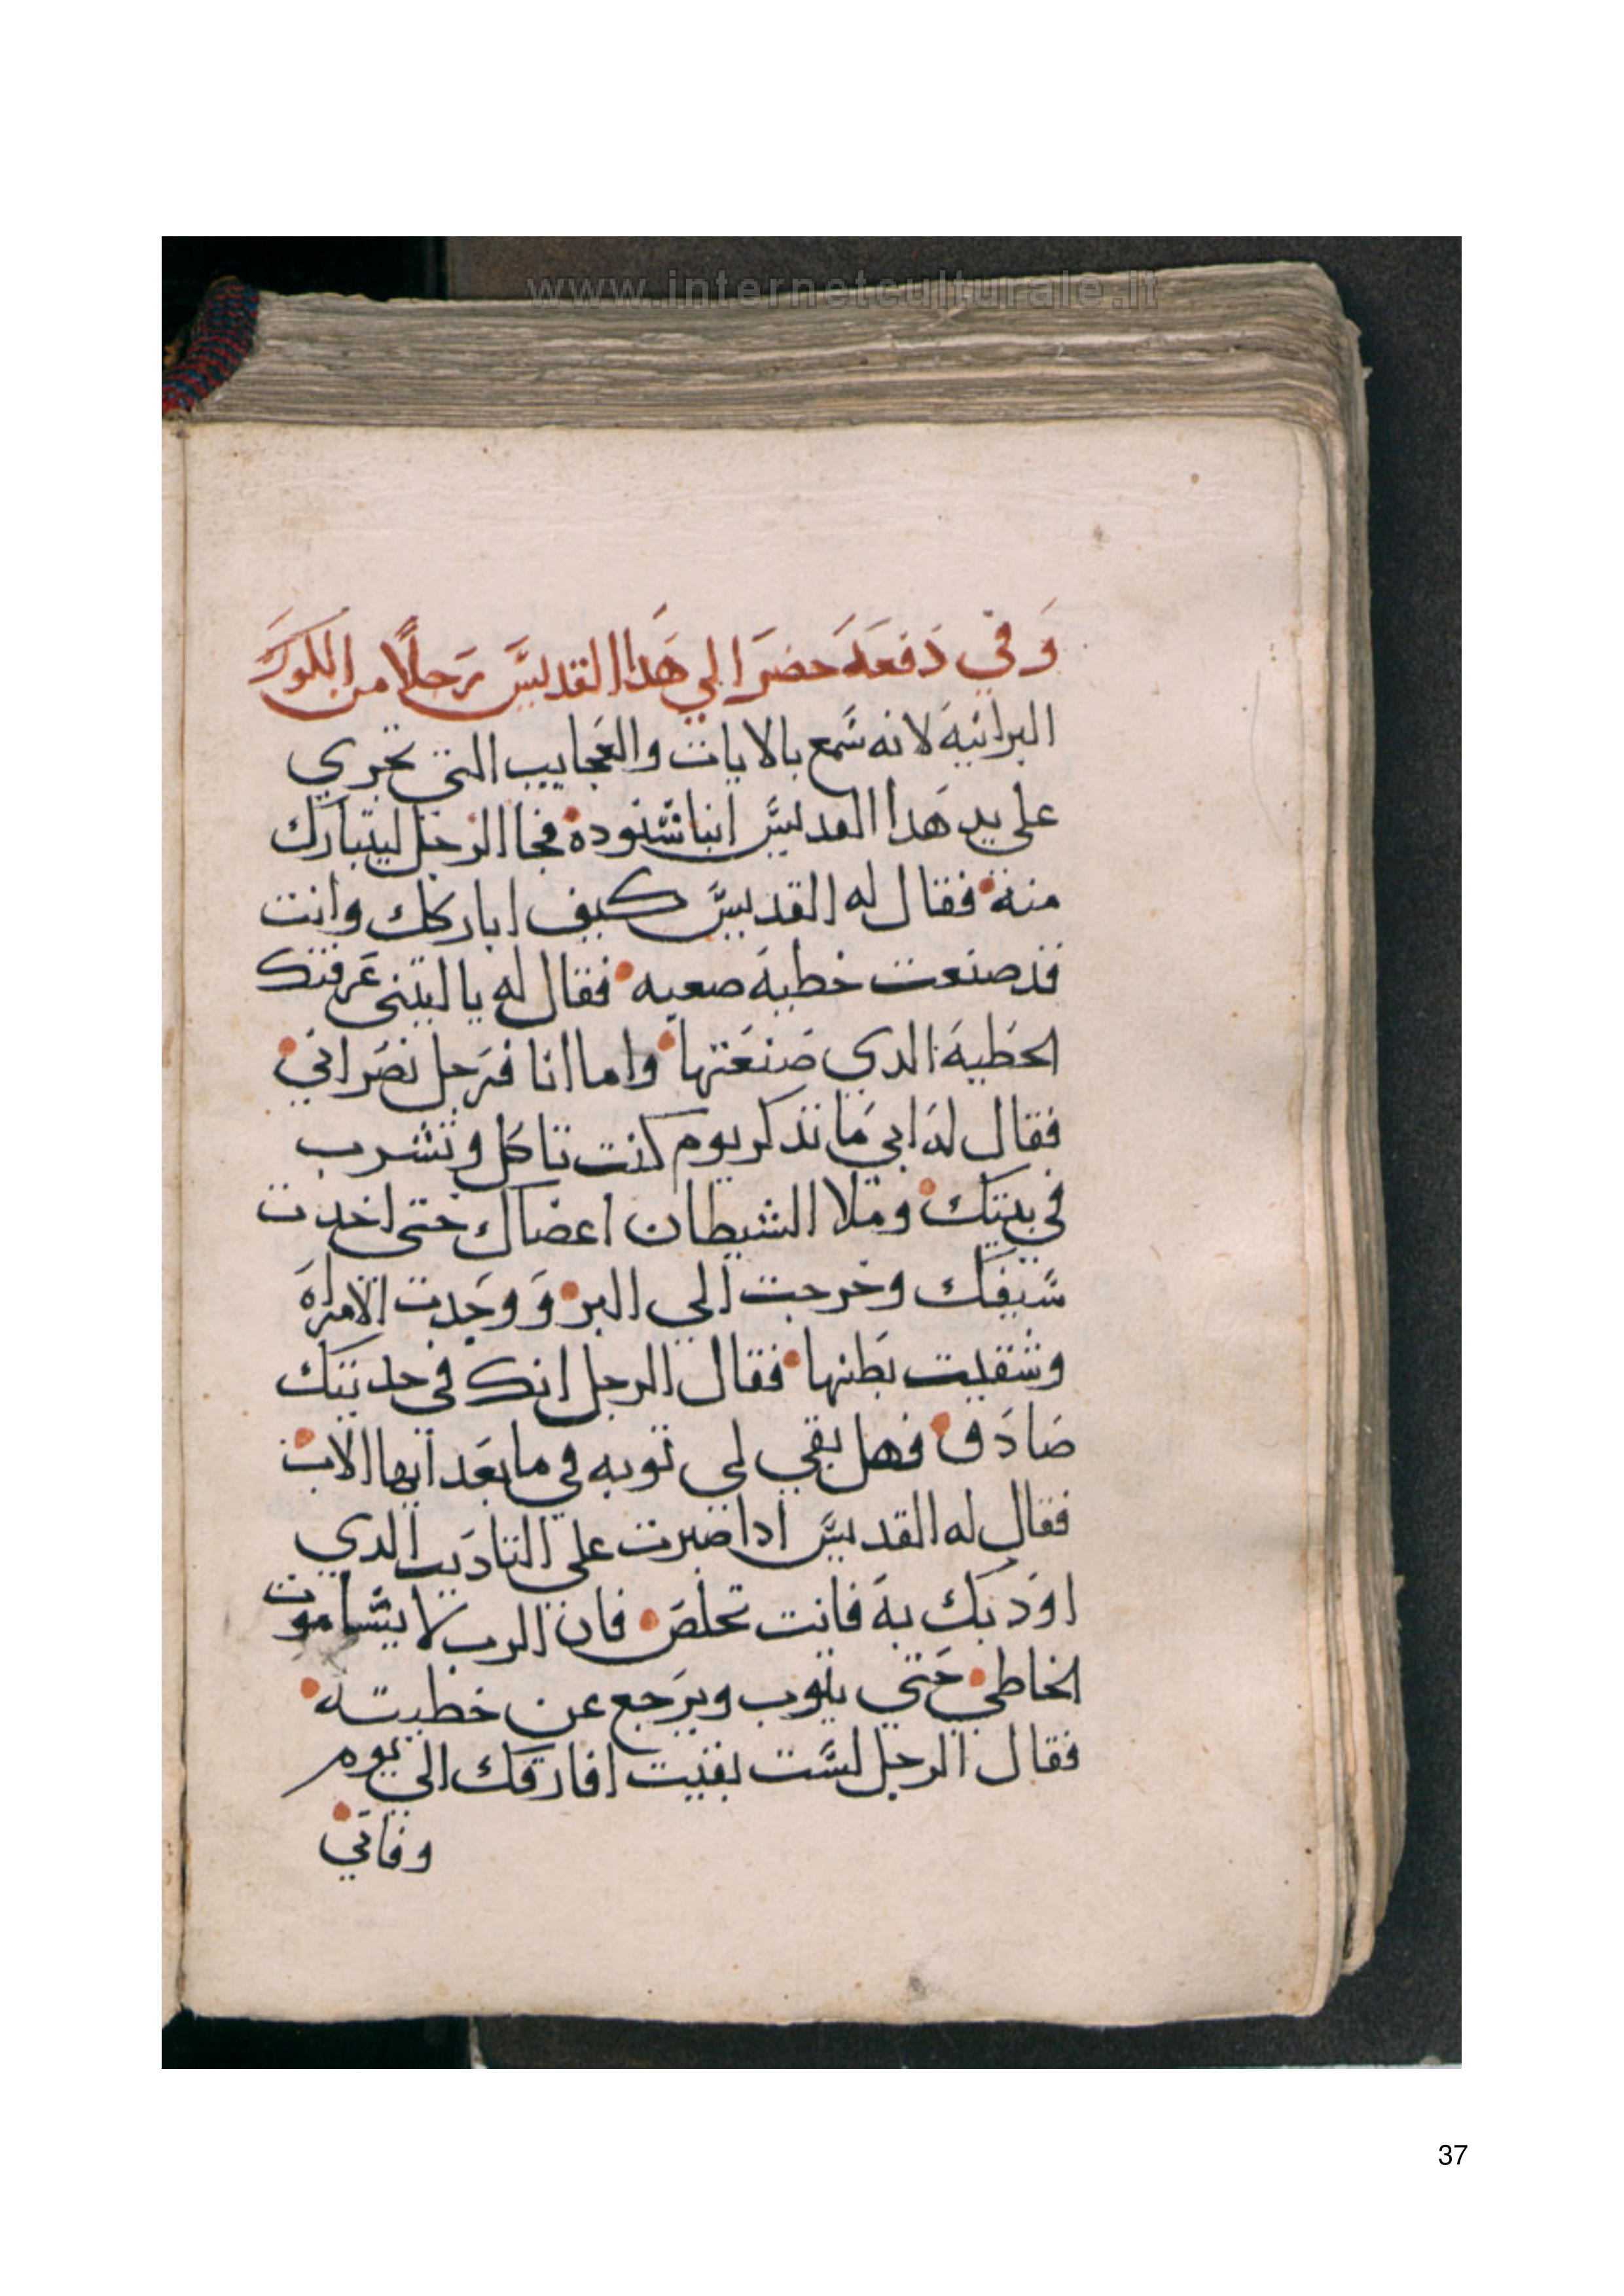 www.internetculturale.it
وَفي دَفعَه حضَر الي هَدا القديسَ رَجلاً من البلورَ
البرانيه لانه سَمع بالايات والعَجايب التي تجري
علي يد هَدا القديسَ انبا شنوده فجا الرجل ليتبارك
منه فقال له القديسَ كيف اباركك وانت
قد صنعت خطيه صعبه فقال له يا ليتني عَرفتك
الخَطيه الدي صَنعَتها واما انا فرَجل نصَراني
فقال لهَ ابي مَا تدكر يوم كنت تاكل وتشرب
في بيتك وملا الشيطان اعضاك حتي اخدت
سَيفك وخرجت الي البر وَوجَدت الامراه
وشقيت بَطنها فقال الرجل انك في حديتك
صَادَق فهل بقي لي توبه في ما بعَد ايها الاب
فقال له القديسَ ادا صَبرت علي التاديَب الدي
اودَبك به فانت تخلصَ فان الرب لا يشا موت
الخاطي حَتي يتوب ويرَجع عن خطيته
فقال الرجل لسَت بقيت افارقك الي يوم
وفاتي
37